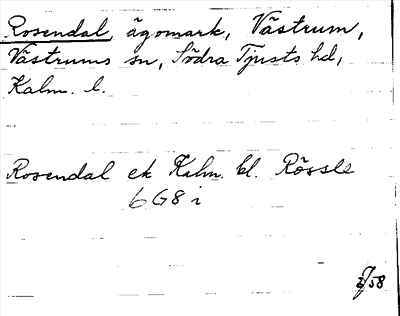 Rosendal, ägomark, Västrum,
Västrums sn, Södra Tjusts hd,
Kalm. l.
Rosendal ek Kalm. bl. Rössle
6G8i
58